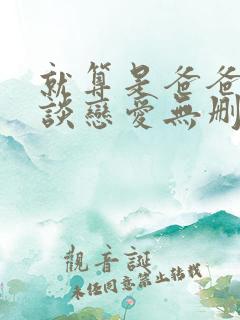 就算是爸爸
談戀愛無刪
觀音誕
未经同意禁止转载